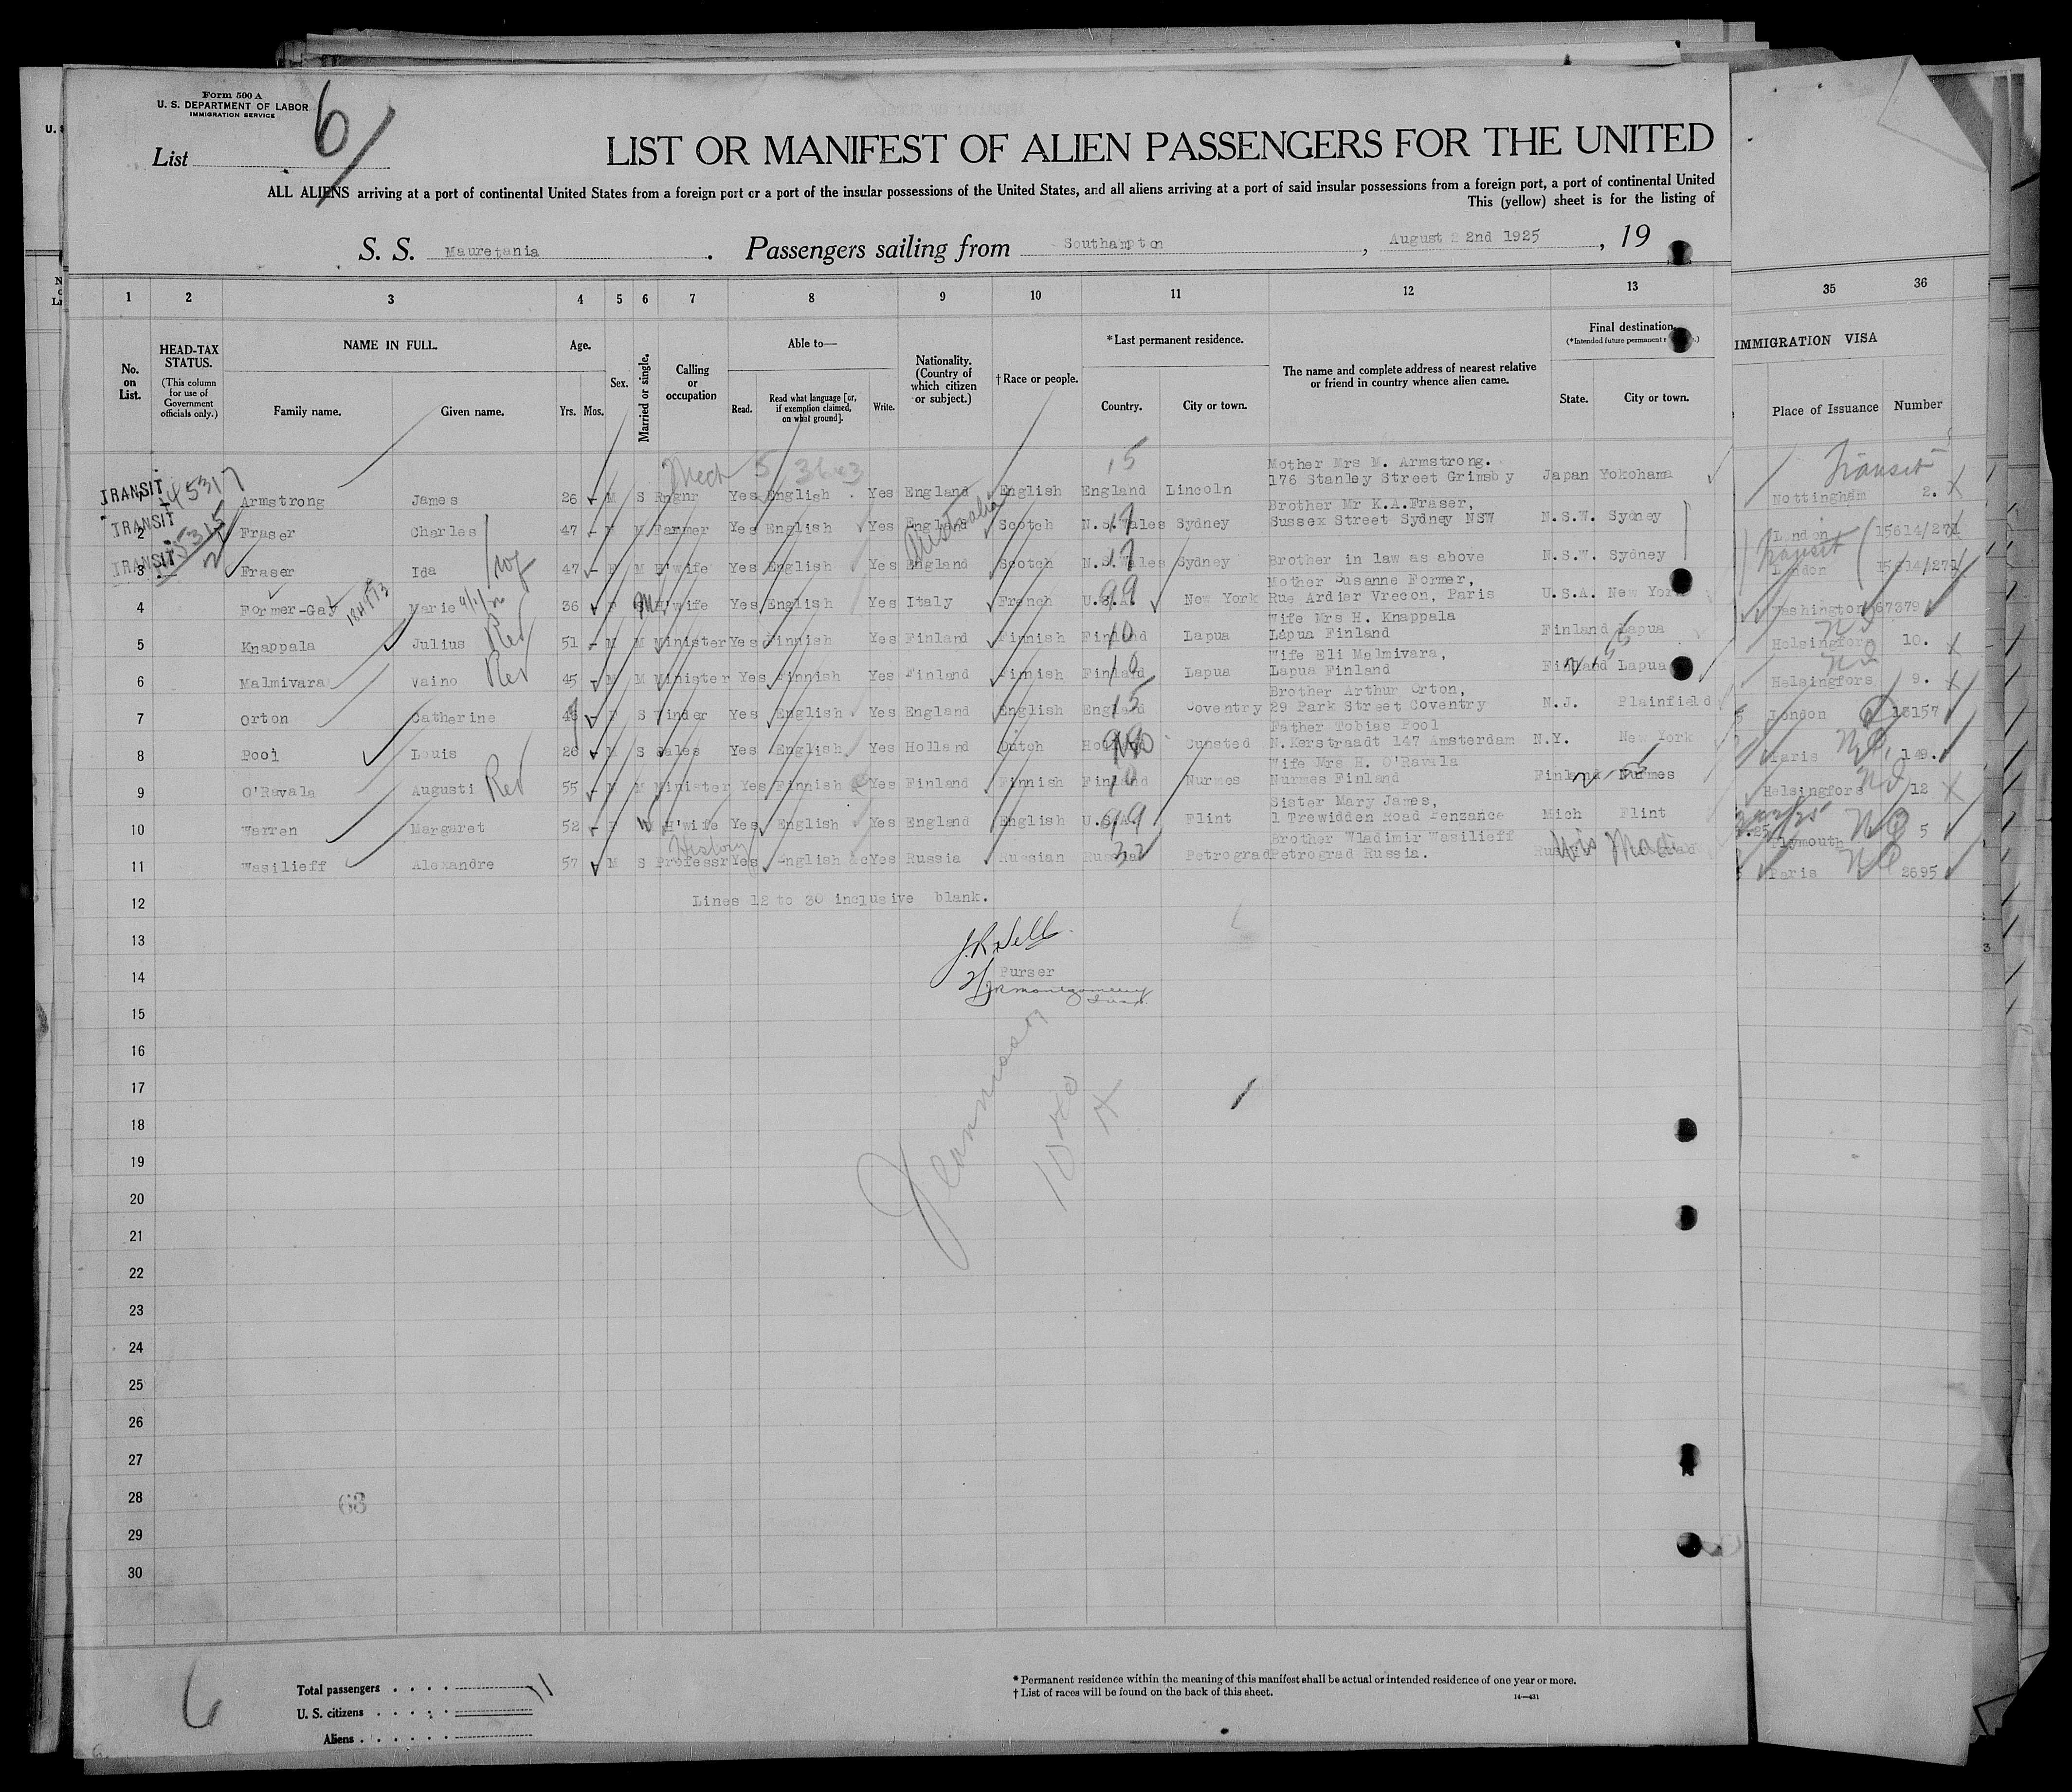 Form 500 A
U. S. DEPARTMENT OF LABOR
IMMIGRATION SERVICE
List 6
LIST OR MANIFEST OF ALIEN PASSENGERS FOR THE UNITED
ALL ALIENS arriving at a port of continental United States from a foreign port or a port of the insular possessions of the United States, and all aliens arriving at a port of said insular possessions from a foreign port, a port of continental United
This (yellow) sheet is for the listing of
S. S. Mauretania . Passengers sailing from Southampton , August 22nd 1925 , 19
1 2 3 4 5 6 7 8 9 10 11 12 13 35 36
No. on List.
HEAD-TAX STATUS.
(This column for use of Government officials only.)
NAME IN FULL.
Family name. Given name.
Age.
Yrs. Mos.
Sex.
Married or single.
Calling or occupation
Able to—
Read. Read what language [or, if exemption claimed, on what ground]. Write.
Nationality. (Country of which citizen or subject.)
†Race or people.
*Last permanent residence.
Country. City or town.
The name and complete address of nearest relative or friend in country whence alien came.
Final destination.
(*Intended future permanent
State. City or town.
IMMIGRATION VISA
Place of Issuance Number
Mech 5 3643 15 Transit
Mother Mrs M. Armstrong.
TRANSIT Armstrong James 26 M S Engnr Yes English Yes England English England Lincoln 176 Stanley Street Grimsby Japan Yokohama Nottingham 2.
Brother Mr K.A.Fraser,
TRANSIT 2 Fraser Charles 47 M M Farmer Yes English Yes England Australia Scotch N.S.Wales Sydney Sussex Street Sydney NSW N.S.W. Sydney London 15614/271
TRANSIT 3 Fraser Ida 47 F M H'wife Yes English Yes England Scotch N.S.Wales Sydney Brother in law as above N.S.W. Sydney Transit London 15614/271
Mother Susanne Former,
4 Former-Gat Marie 36 F M H'wife Yes English Yes Italy French U.S.A. 99 New York Rue Ardier Vrecon, Paris U.S.A. New York Washington 67379
Wife Mrs H. Knappala
5 Knappala Julius Rev 51 M M Minister Yes Finnish Yes Finland Finnish Finland 10 Lapua Lapua Finland Finland Lapua Helsingfors 10.
Wife Eli Malmivara,
6 Malmivara Vaino Rev 45 M M Minister Yes Finnish Yes Finland Finnish Finland 10 Lapua Lapua Finland Finland Lapua Helsingfors 9.
Brother Arthur Orton,
7 Orton Catherine F S Winder Yes English Yes England English England 15 Coventry 29 Park Street Coventry N.J. Plainfield London 13157
Father Tobias Pool
8 Pool Louis 26 M S Sales Yes English Yes Holland Dutch Holland Cunsted N.Kerstraadt 147 Amsterdam N.Y. New York Paris 149.
Wife Mrs H. O'Ravala
9 O'Ravala Augusti Rev 55 M M Minister Yes Finnish Yes Finland Finnish Finland 10 Nurmes Nurmes Finland Finland Nurmes Helsingfors 12
Sister Mary James,
10 Warren Margaret 52 F W H'wife Yes English Yes England English U.S.A. 99 Flint 1 Trewidden Road Penzance Mich Flint Plymouth 5
History Brother Wladimir Wasilieff
11 Wasilieff Alexandre 57 M S Professr Yes English &c Yes Russia Russian Russia 32 Petrograd Petrograd Russia. Wis Madi Paris 2695
12 Lines 12 to 30 inclusive blank.
13
14 Purser
15
16
17
18
19
20
21
22
23
24
25
26
27
28 63
29
30
6
Total passengers 11
U. S. citizens
Aliens
* Permanent residence within the meaning of this manifest shall be actual or intended residence of one year or more.
† List of races will be found on the back of this sheet.
14—431